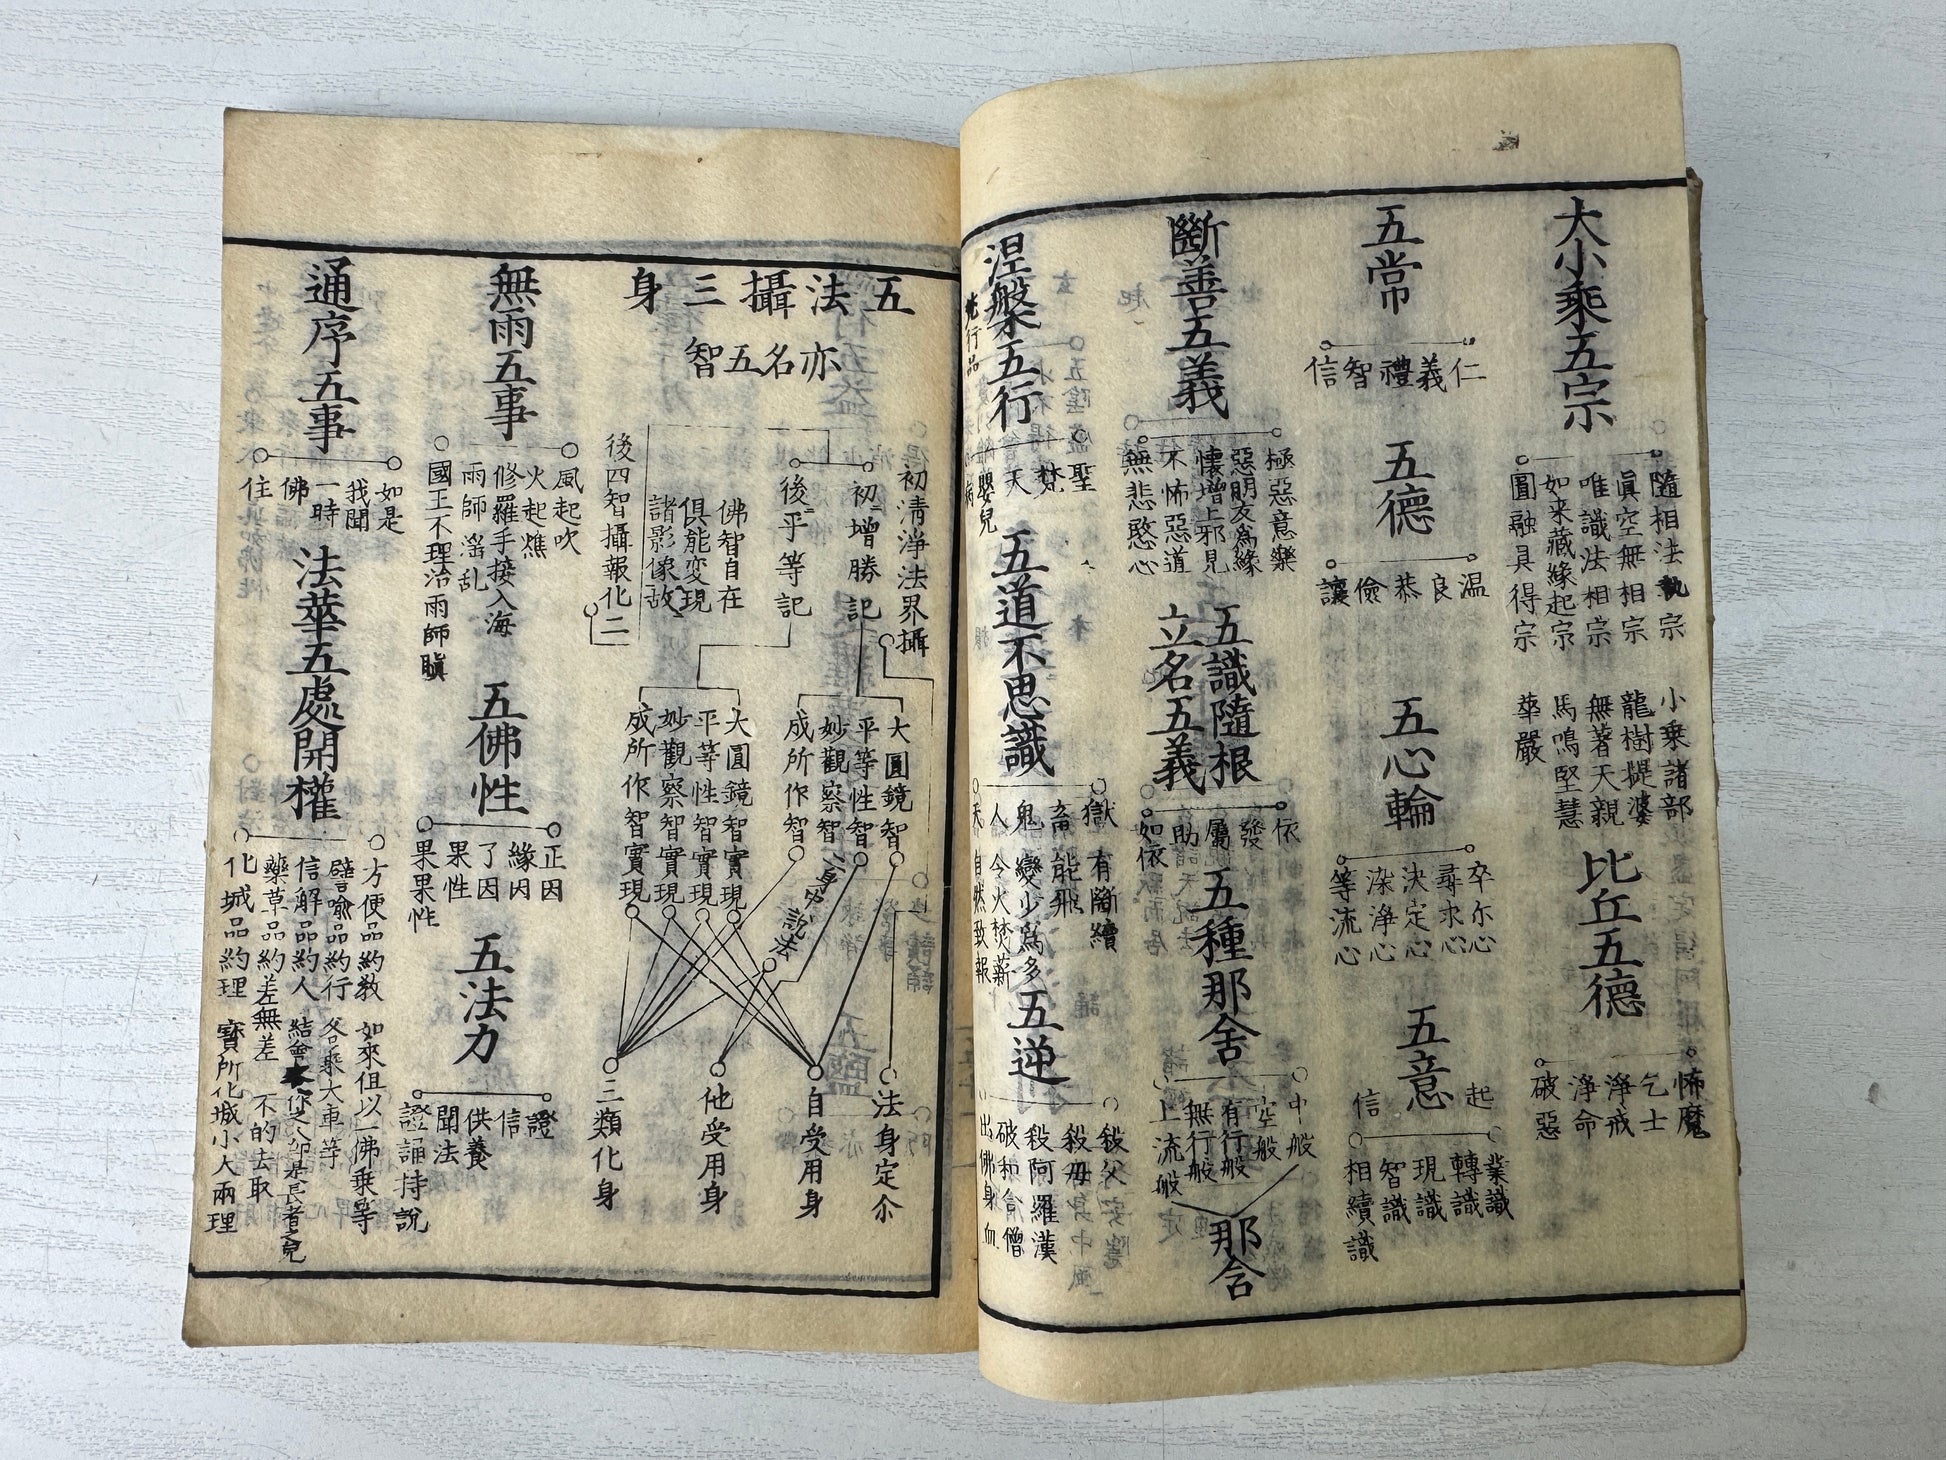 大小乘五宗
隨相法執宗　小乘諸部
眞空無相宗　龍樹提婆
唯識法相宗　無著天親
如来藏緣起宗　馬鳴堅慧
圓融具得宗　華嚴
比丘五德
怖魔
乞士
淨戒
淨命
破惡
五常
仁
義
禮
智
信
五德
温
良
恭
儉
讓
五心輪
卒尓心
尋求心
決定心
染淨心
等流心
起信
五意
業識
轉識
現識
智識
相續識
斷善五義
極惡意樂
惡朋友為緣
懷增上邪見
不怖惡道
無悲愍心
五識隨根
立名五義
依
發
屬
助
如依
五種那舍
中般
空般
有行般
無行般
上流般
那舍
涅槃五行
行品
聖
梵
天
嬰兒
病
五道不思議
獄　有斷續
畜　能飛
鬼　變少為多
人　今火焚薪
天　自然致報
五逆
殺父
殺母
殺阿羅漢
破和合僧
出佛身血
五法攝三身
亦名五智
初清淨法界攝
初増勝記
後平等記
佛智自在
俱能変現
諸影像故
後四智攝報化二
大圓鏡智
平等性智
妙觀察智
成所作智
大圓鏡智實現
平等性智實現
妙觀察智實現
成所作智實現
二身中說法
法身定尒
自受用身
他受用身
三類化身
無雨五事
風起吹
火起燋
修羅手接入海
雨師滛乱
國王不理治雨師瞋
五佛性
正因
緣因
了因
果性
果果性
五法力
證
信
供養
聞法
讀誦持說
通序五事
如是
我聞
一時
佛
住
法華五處開權
方便品約教　如來但以一佛乘等
譬喻品約行　各乘大車等
信解品約人　結會
藥草品約差無差　不的去取
化城品約理　寳所化城小大兩理